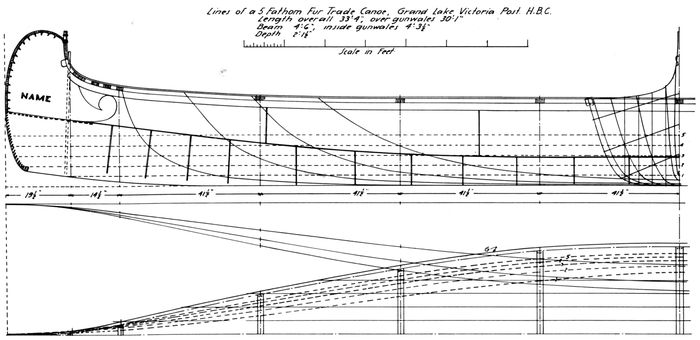 Lines of a 5 Fathom Fur Trade Canoe, Grand Lake Victoria Post H.B.C.
Length overall 33'4", over gunwales 30'1"
Beam 4'6", inside gunwales 4'3½"
Depth 2'1½"
Scale in Feet
NAME
5
4
3
2
1
19½" 14½" 41½" 41½" 41½" 41½"
5